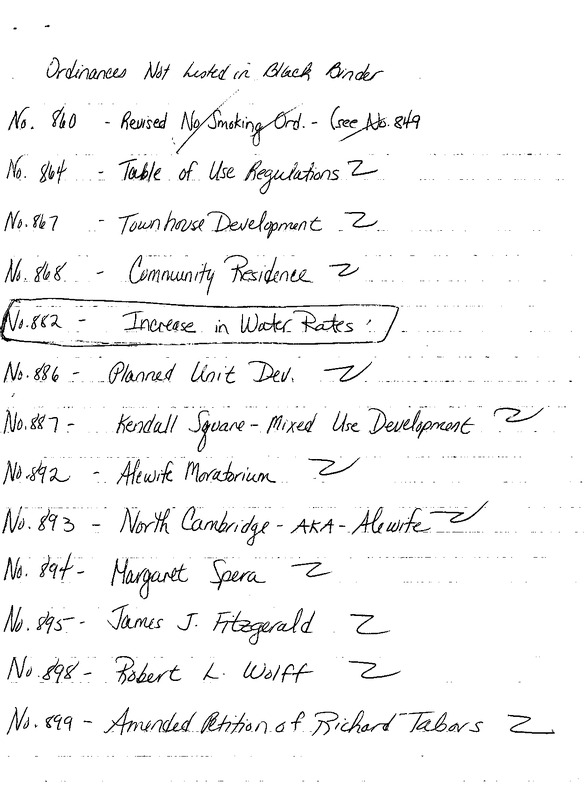 Ordinances Not Listed in Black Binder
No. 860 - Revised No Smoking Ord. - (see No. 849
No. 864 - Table of Use Regulations Z
No. 867 - Townhouse Development Z
No. 868 - Community Residence Z
No. 882 - Increase in Water Rates
No. 886 - Planned Unit Dev. Z
No. 887 - Kendall Square - Mixed Use Development Z
No. 892 - Alewife Moratorium Z
No. 893 - North Cambridge - AKA - Alewife Z
No. 894 - Margaret Spera Z
No. 895 - James J. Fitzgerald Z
No. 898 - Robert L. Wolff Z
No. 899 - Amended Petition of Richard Tabors Z